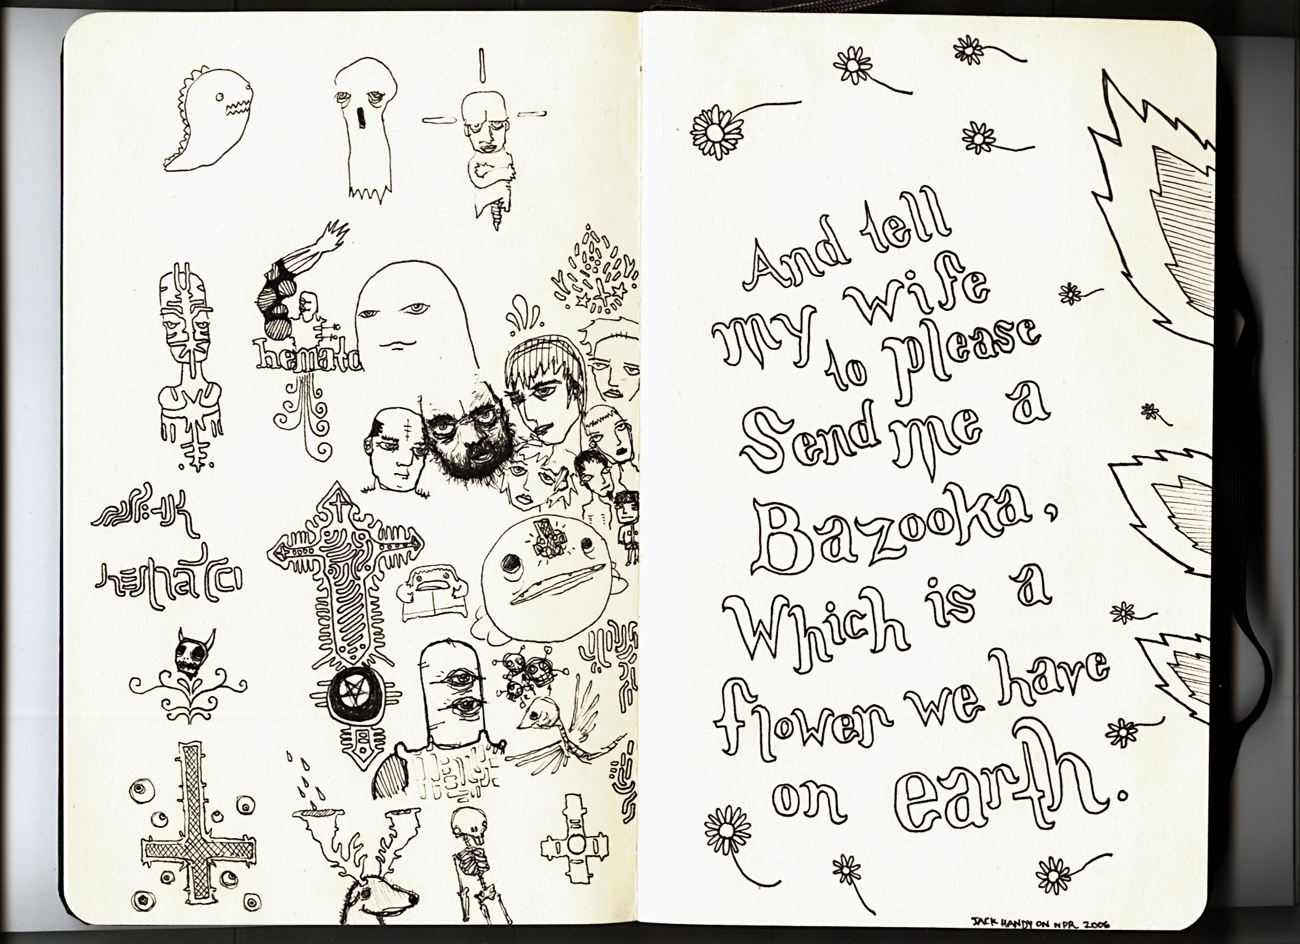 hemato
hemato
And tell
my wife
to please
Send me a
Bazooka,
Which is a
flower we have
on earth.
JACK HANDY ON NPR 2006